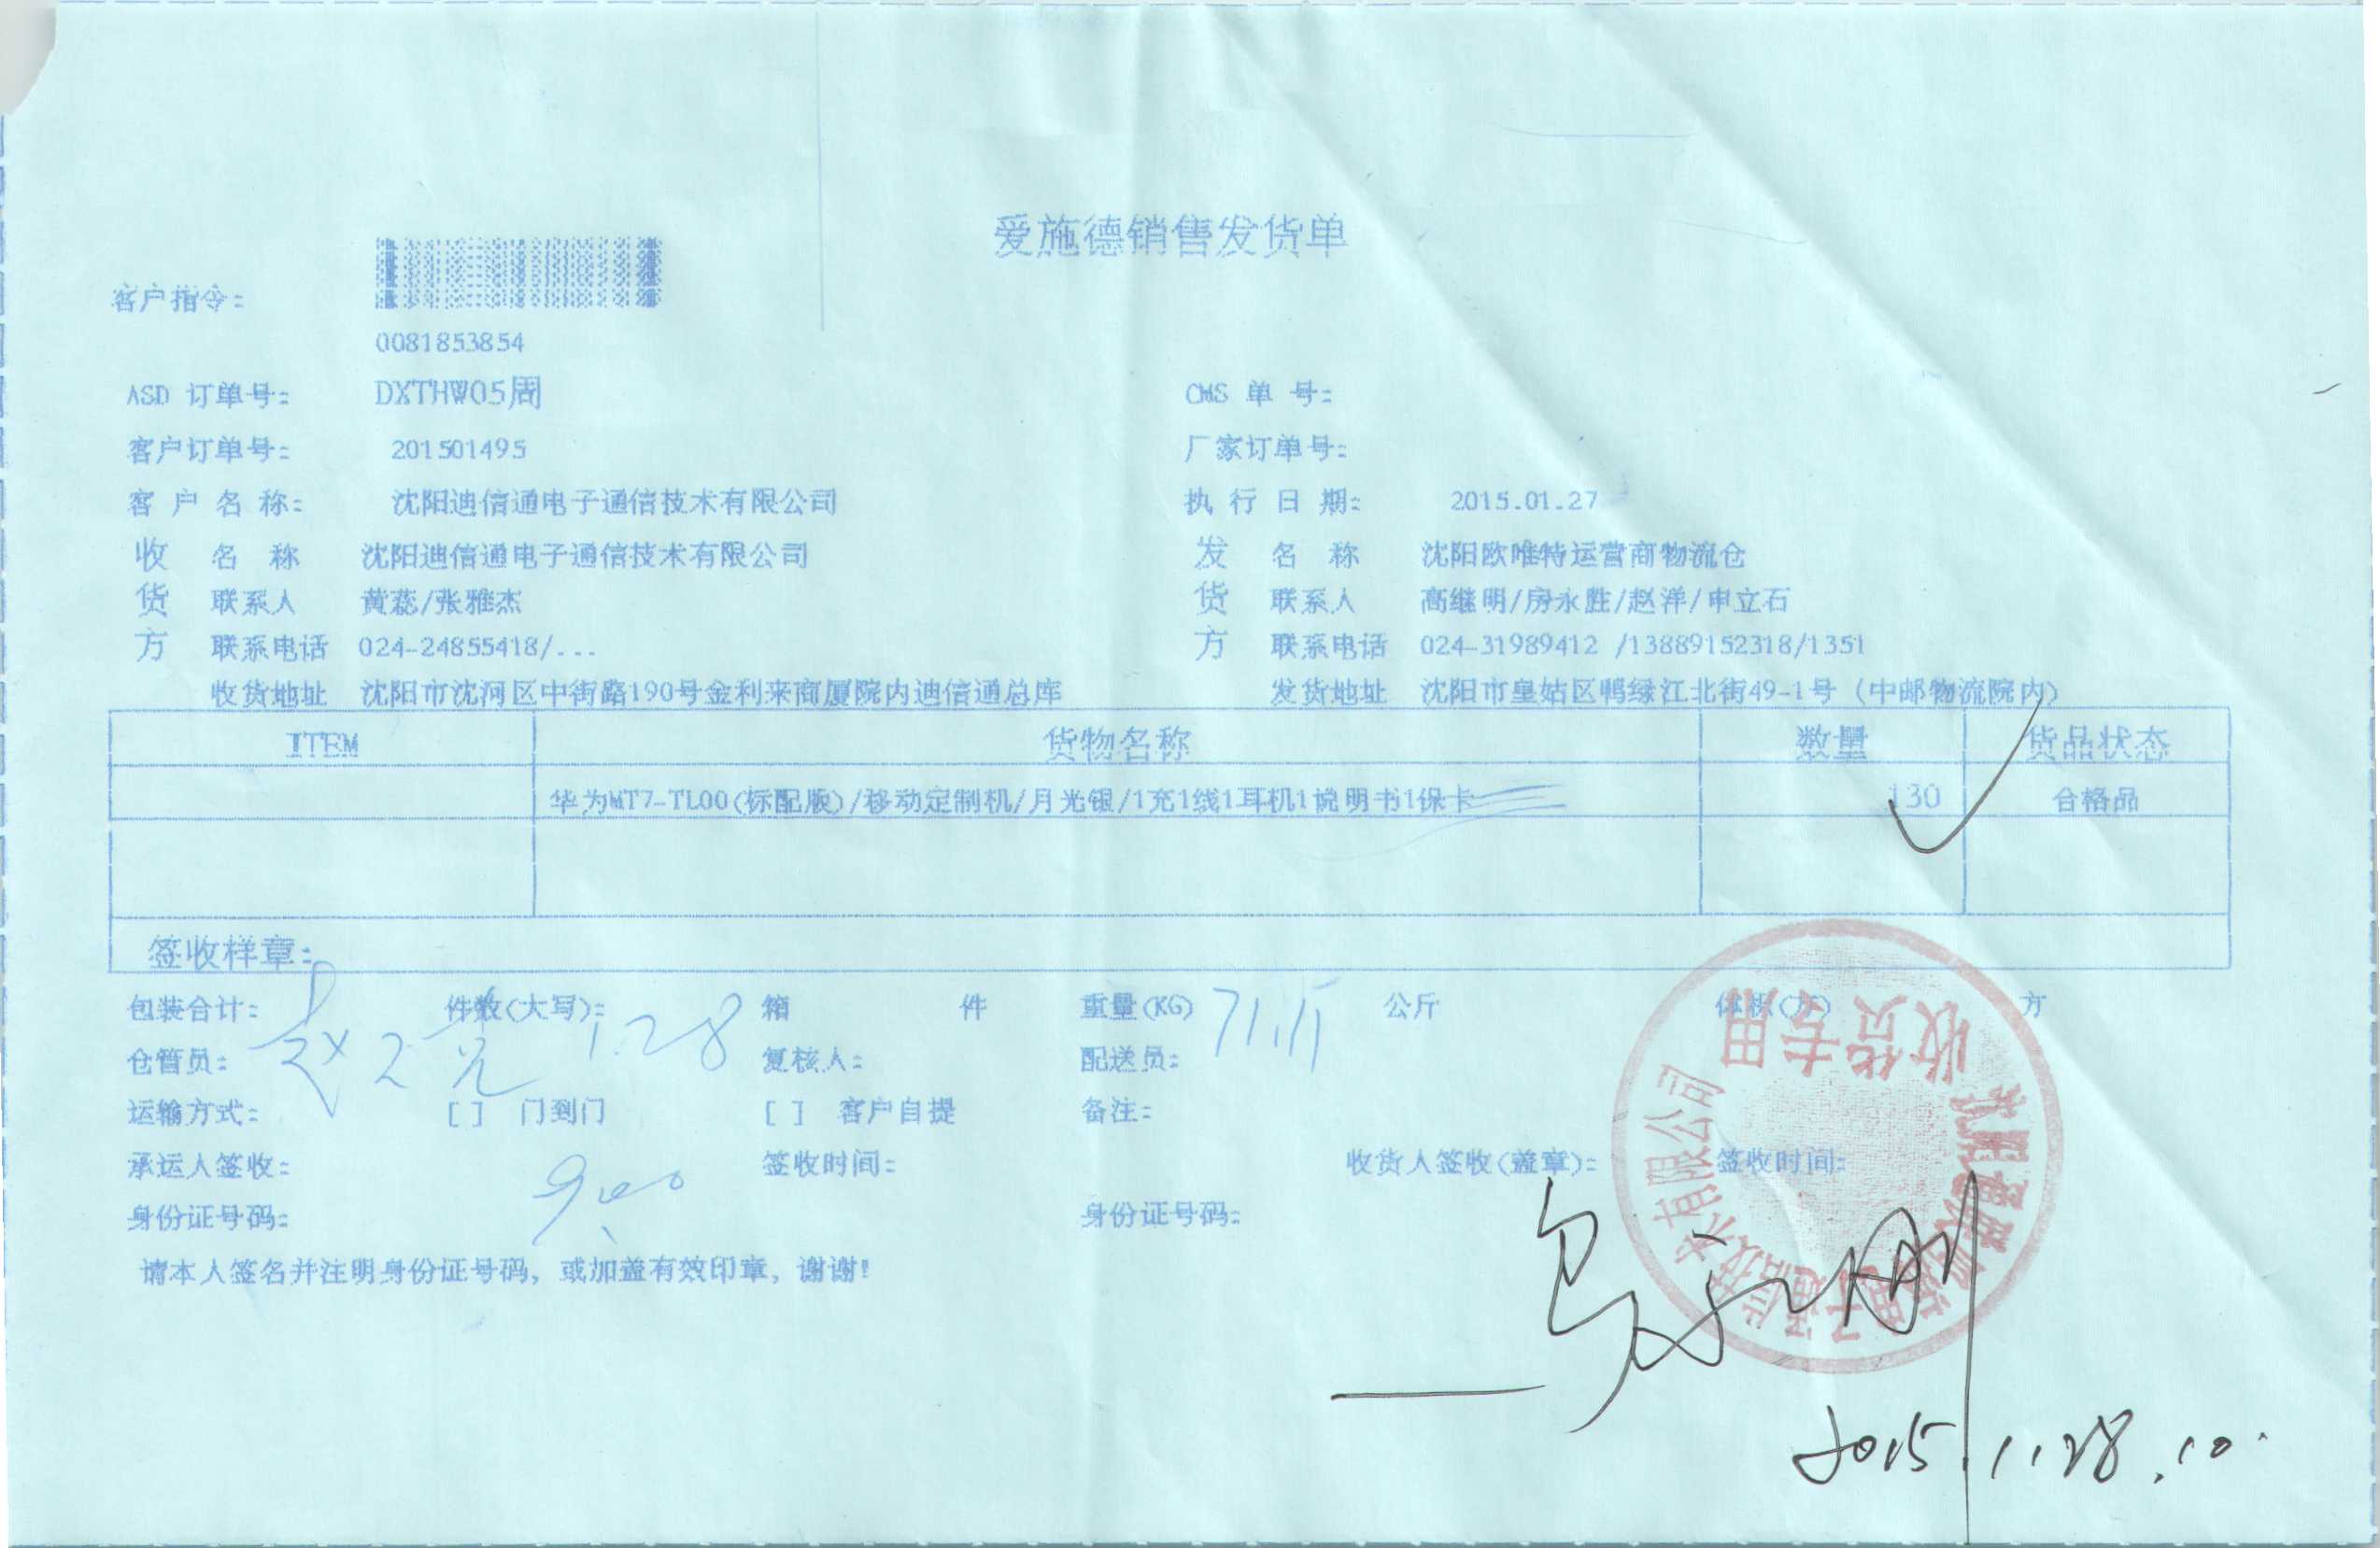 爱施德销售发货单
客户指令：
0081853854
ASD 订单号： DXTHW05周 CMS 单 号：
客户订单号： 201501495 厂家订单号：
客 户 名 称： 沈阳迪信通电子通信技术有限公司 执 行 日 期： 2015.01.27
收 名 称 沈阳迪信通电子通信技术有限公司 发 名 称 沈阳欧唯特运营商物流仓
货 联系人 黄蕊/张雅杰 货 联系人 高继明/房永胜/赵洋/申立石
方 联系电话 024-24855418/... 方 联系电话 024-31989412 /13889152318/1351
收货地址 沈阳市沈河区中街路190号金利来商厦院内迪信通总库 发货地址 沈阳市皇姑区鸭绿江北街49-1号（中邮物流院内）
ITEM 货物名称 数量 货品状态
华为MT7-TL00(标配版)/移动定制机/月光银/1充1线1耳机1说明书1保卡 130 合格品
签收样章：
包装合计： 件数(大写)： 箱 件 重量(KG) 公斤 体积(方) 方
1.28
仓管员： 复核人： 配送员：
运输方式： [ ] 门到门 [ ] 客户自提 备注：
承运人签收： 签收时间： 收货人签收(盖章)： 签收时间：
身份证号码： 身份证号码：
请本人签名并注明身份证号码，或加盖有效印章，谢谢！
收货专用
2015.1.28.10